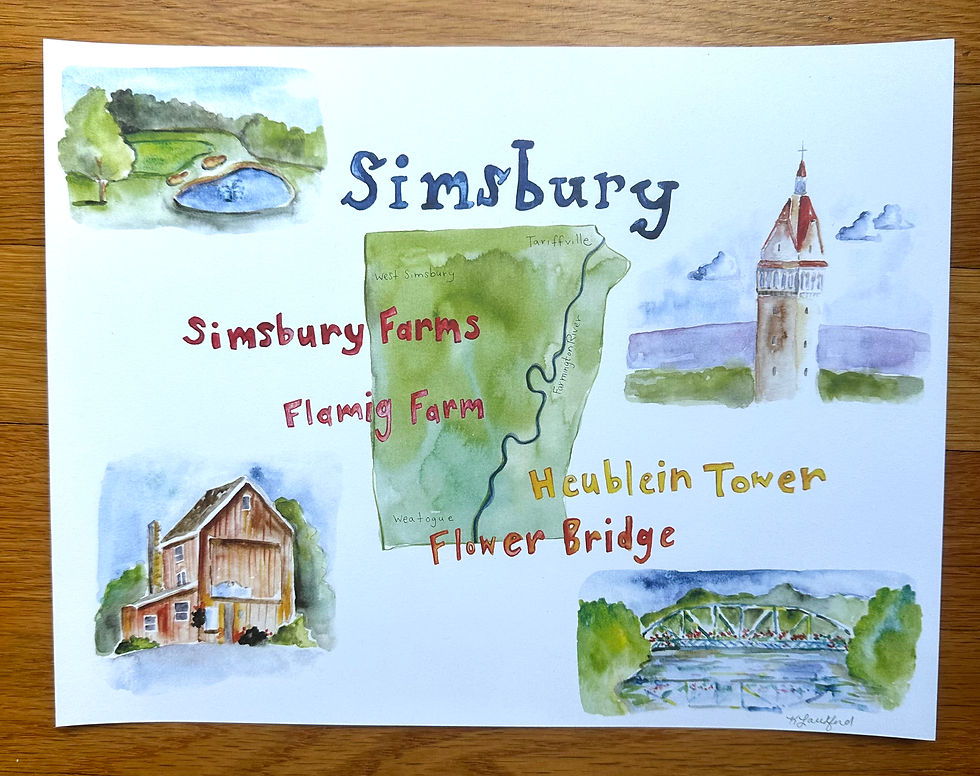 Simsbury
Tariffville
West Simsbury
Simsbury Farms
Farmington River
Flamig Farm
Heublein Tower
Weatogue
Flower Bridge